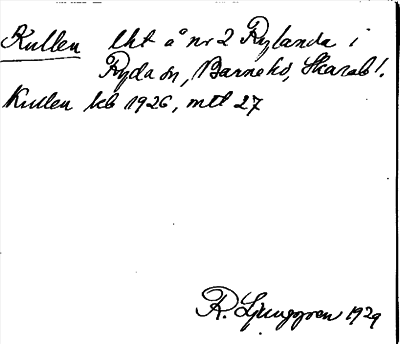 Kullen lht å nr 2 Rylanda i
Ryda sn, Barne hd, Skarab l.
Kullen kb 1926, mtl 27
R. Ljunggren 1929